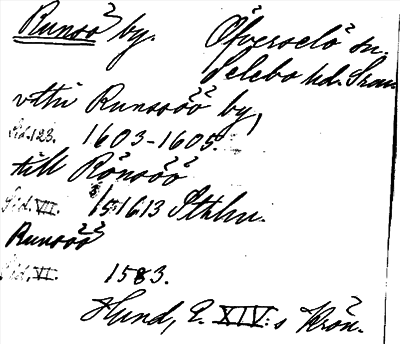 Runsö by. Öfverselö sn.
Selebo hd. Srm.
vthi Runssöö by,
Sid. 123. 1603-1605.
till Rönsöö
Sid. VII. 1613 Sthlm.
Runsöö
Sid. VI. 1583.
Hund, E. XIV:s Krön.